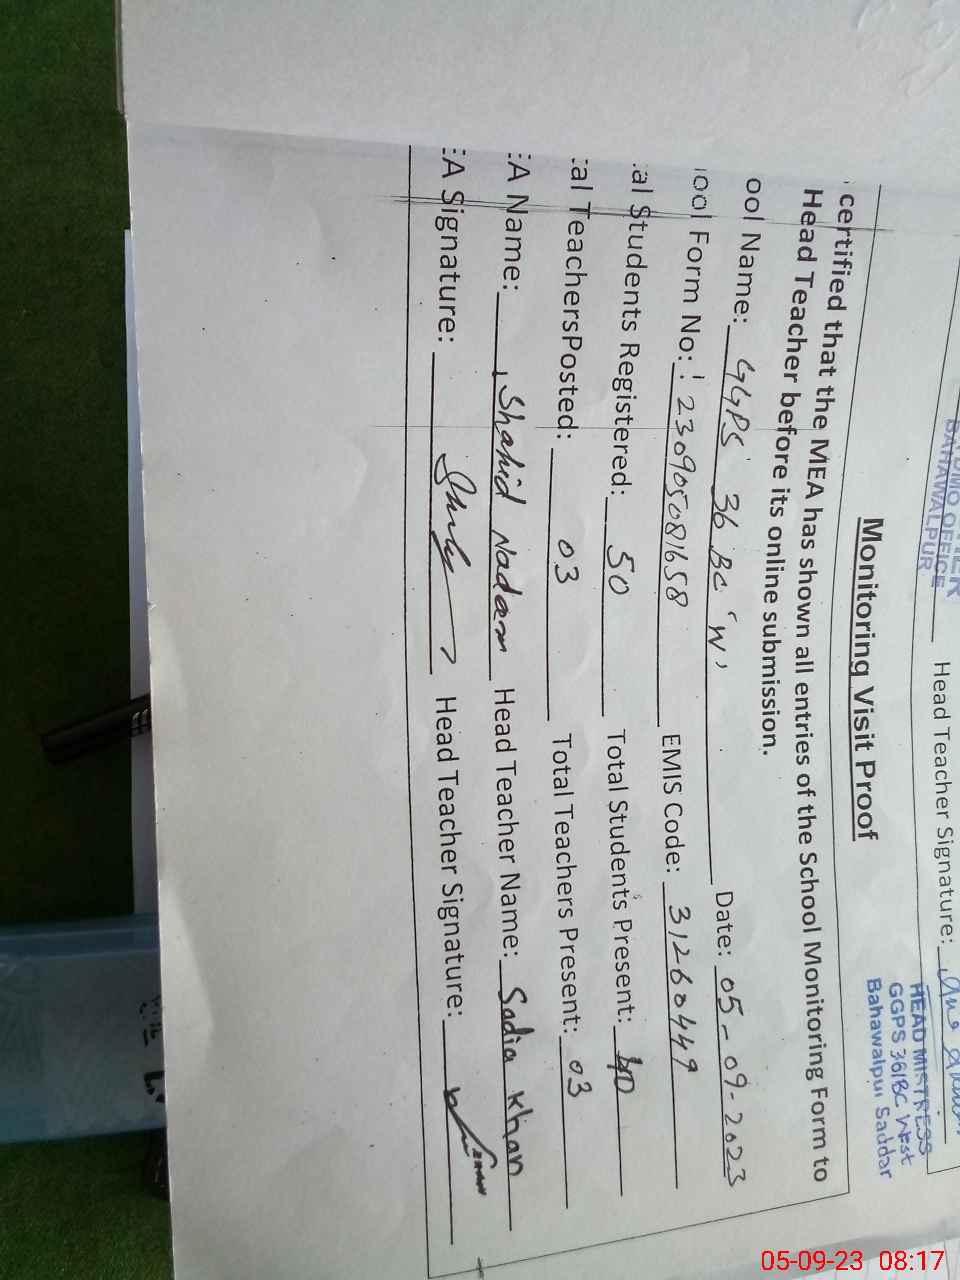 DMO OFFICE
BAHAWALPUR
Head Teacher Signature:
HEAD MISTRESS
GGPS 36/BC West
Bahawalpur Saddar
Monitoring Visit Proof
certified that the MEA has shown all entries of the School Monitoring Form to
Head Teacher before its online submission.
ool Name: GGPS 36 BC 'W' Date: 05-09-2023
ool Form No: 230905081658 EMIS Code: 31260449
al Students Registered: 50 Total Students Present: 40
al TeachersPosted: 03 Total Teachers Present: 03
EA Name: Shahid Nadam Head Teacher Name: Sadia Khan
EA Signature: Head Teacher Signature:
05-09-23 08:17